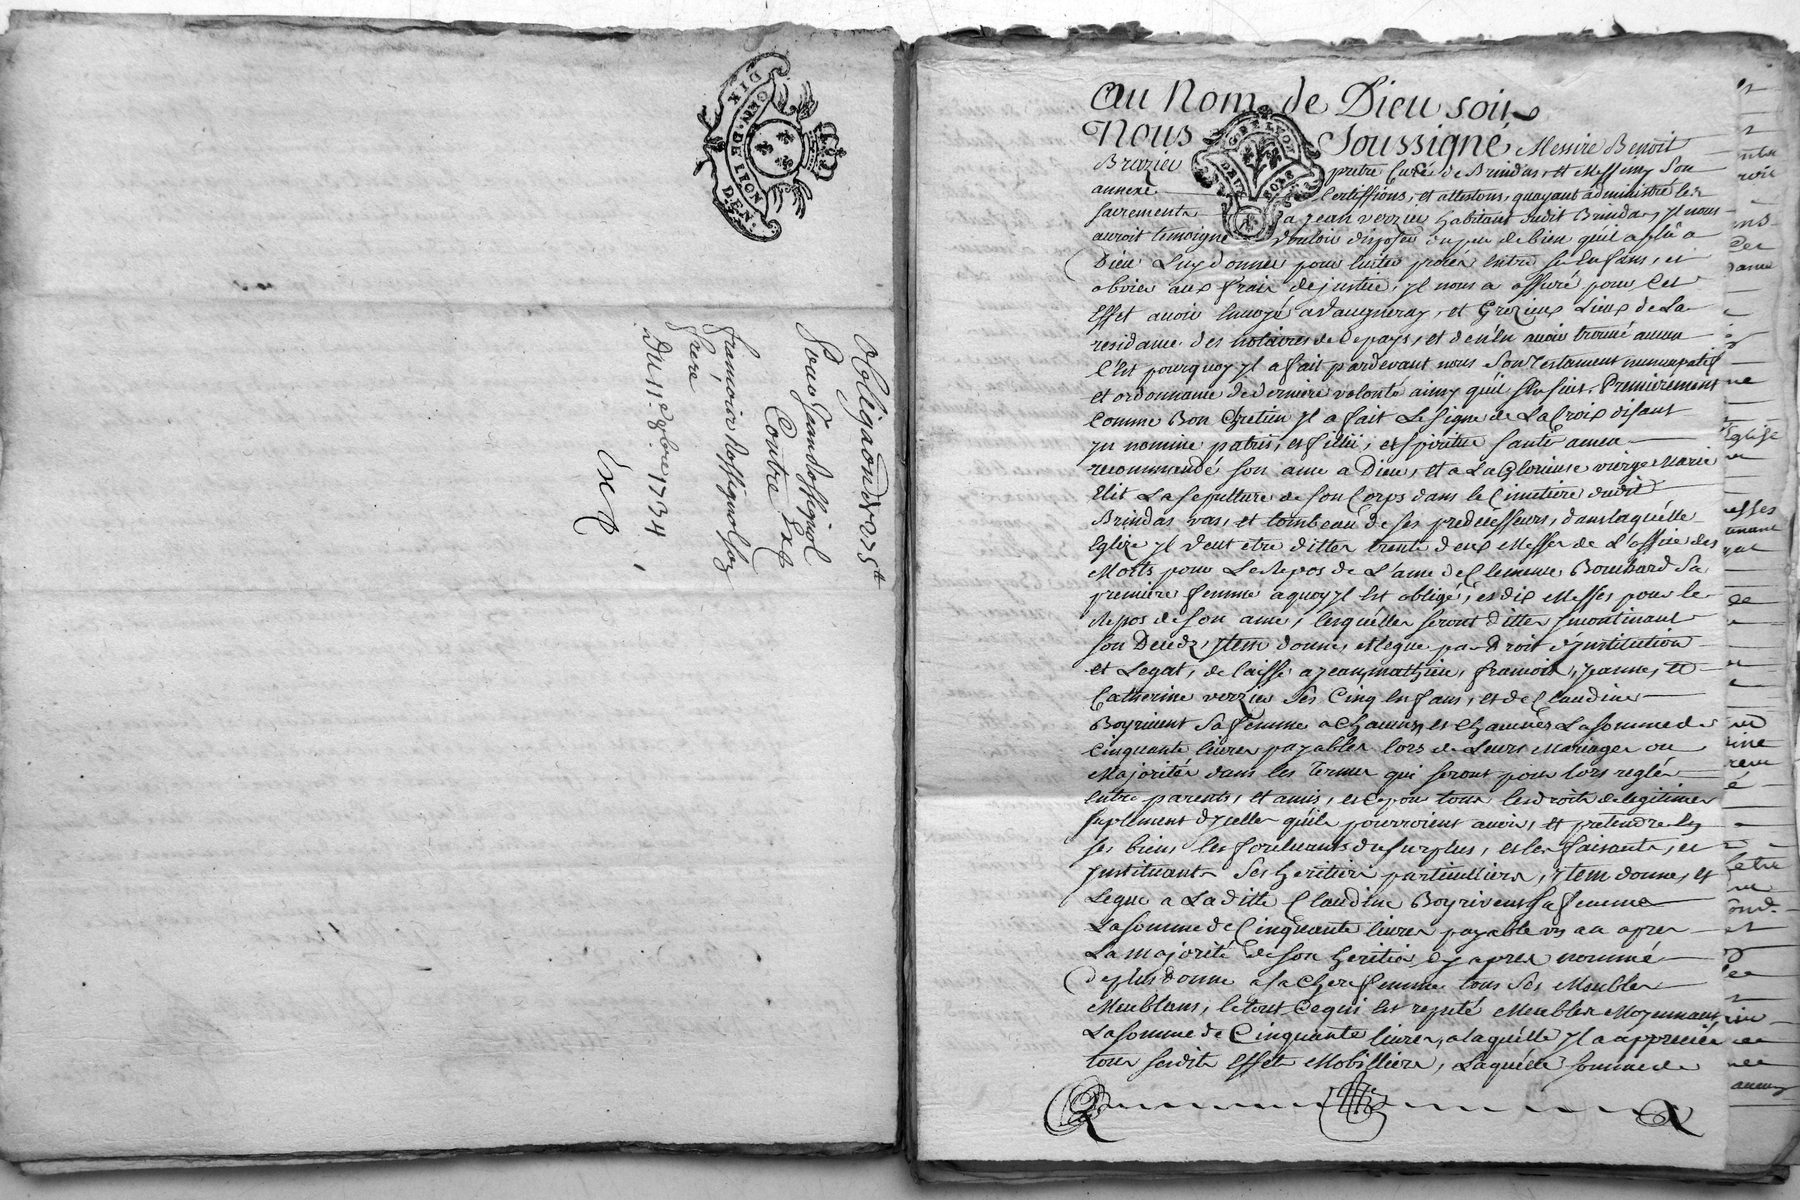 DIX
GEN. DE LION
DEN.
Obligaõn de 275 lt
Pour Jean Rossignol
Contre Exp
francois Rossignol son
frere
Du 11e xbre 1734
Au Nom de Dieu soit
Nous Soussigné Messire Benoit
GNE. LION
DEUX SOLS
Brazier prêtre Curé de Brindas et Messimy Son
annexe Certiffions, et attestons, quayant administré les
sacrements a jean verzieu habitant dudit Brindas, Jl nous
auroit temoigné vouloir disposer du peu de bien qu'il a plû a
Dieu Luy donner pour éviter procès entre ses Enfans, et
obvier aux frais de justice, Jl nous a assuré pour cet
Effet avoir Envoyé a Vaugneray, et Grezieux Lieux de La
residance des notaires de ce pays, et de n'en avoir trouvé aucun
C'est pourquoy Jl a fait pardevant nous Son Testament nuncupatif
et ordonnance de derniere volonté ainsy quil s'Ensuit. Premierement
Comme Bon Chretien Jl a fait Le signe de La Croix disant
Jn nomine patris, et fillii, et spiritus sancti amen
recommandé son ame a Dieu, et a La Glorieuse vierge Marie
Elit La sepulture de son Corps dans le Cimetiere dudit
Brindas vas, et tombeau de ses predecesseurs, dans laquelle
Eglize Jl veut etre dittes trente deux Messes de L'office des
Morts pour Le Repos de L'ame de Clemence Bouchard Sa
premiere femme a quoy Jl est obligé, et dix Messes pour le
Repos de son ame, lesquélles seront dittes Jncontinant
son Decedz, Jtem donne, et legue par droit d'Jnstitution
et Legat, delaisse a jean, mathieu, francois, Jeanne, et
Catherine verzieu Ses Cinq Enfans, et de Claudine
Boyrivent Sa femme a Chacuns, et Chacunes La somme de
Cinquante livres payables lors de Leurs Mariages ou
Majorités dans les Termes qui seront pour lors reglés
Entre parents, et amis, et ce pour tous les droits de legitimes
suplement d'Jcelles qu'ils pourroient avoir, et pretendre En
ses biens les forcluants du surplus, et les faisants, et
Jnstituants Ses heritiers particulliers, Jtem donne, et
Legue a La ditte Claudine Boyrivent Sa femme
La somme de Cinquante livres payable un an apres
La majorité de son heritier cy apres nommé
de plus donne a Sa Chere femme tous Ses Meubles
Meublans, le tout Ce qui Est reputé Meubles Moyennant
La somme de Cinquante livres, a laquélle Jl a apprecié
tous sesdits Effets Mobilliers, Laquélle somme de